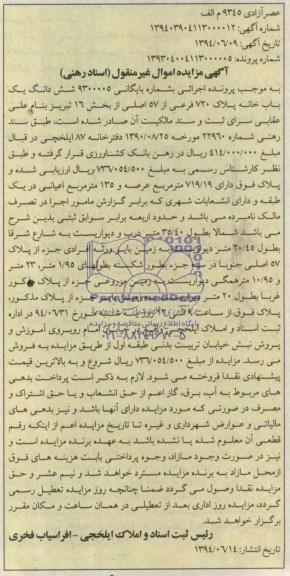 عصرآزادی ۹۳۴۵ م الف
شماره آگهی: ۱۳۹۴۰۳۹۰۴۱۱۳۰۰۰۰۱۲
تاریخ آگهی: ۱۳۹۴/۰۶/۰۹
شماره پرونده: ۱۳۹۳۰۴۰۰۴۱۱۳۰۰۰۰۰۵
آگهی مزایده اموال غیرمنقول (اسناد رهنی)
به موجب پرونده اجرائی بشماره بایگانی ۹۳۰۰۰۰۵ شش دانگ یک
باب خانه پلاک ۷۲۰ فرعی از ۵۷ اصلی از بخش ۱۶ تبریز بنام علی
عقابی سرای ثبت و سند مالکیت آن صادر شده است، طبق سند
رهنی شماره ۲۲۹۶۰ مورخه ۱۳۹۰/۰۸/۲۵ دفترخانه ۸۷ ایلخچی در قبال
مبلغ ۴۱۴/۰۰۰/۰۰۰ ریال در رهن بانک کشاورزی قرار گرفته و طبق
نظر کارشناس رسمی به مبلغ ۷۳۶/۰۵۴/۵۰۰ ریال ارزیابی شده و
پلاک فوق دارای ۷۱۹/۱۹ مترمربع عرصه و ۱۳۵ مترمربع اعیانی در یک
طبقه و دارای انشعابات شهری که برابر گزارش مامور اجرا در تصرف
مالک نامبرده می باشد و حدود اربعه برابر سوابق ثبتی بدین شرح
می باشد شمالا بطول ۳۵/۴۰ متر درب و دیواریست به شارع شرقا
بطول ۲۰/۴۵ متر دیوار به زمین باير ورثه افرادی جزء از پلاک
۵۷ اصلی جنوبا در سه جزء بطور شکسته بطولهای ۱/۹۵ متر، ۲۳ متر
و ۱۰/۹۵ متر همگی دیواریست به زمین مزروعی جزء از پلاک مذکور
غربا بطول ۲۰ متر جزء از پلاک مذکور،
پلاک فوق از ساعت ۹ الی ۱۲ مورخ ۹۴/۰۶/۳۱ در اداره
ثبت اسناد و املاک ایلخچی روبروی آموزش و
پرورش نبش خیابان تربیت طبقه اول از طریق مزایده به فروش
می رسد. مزایده از مبلغ ۷۳۶/۰۵۴/۵۰۰ ریال شروع و به بالاترین قیمت
پیشنهادی نقدا فروخته می شود. لازم به ذکر است پرداخت بدهی
های مربوط به آب، برق، گاز اعم از حق انشعاب و یا حق اشتراک و
مصرف در صورتی که مورد مزایده دارای آنها باشد و نیز بدهی های
مالیاتی و عوارض شهرداری و غیره تا تاریخ مزایده اعم از اینکه رقم
قطعی آن معلوم شده یا نشده باشد به عهده برنده مزایده است و
نیز در صورت وجود مازاد، وجوه پرداختی بابت هزینه های فوق
ازمحل مازاد به برنده مزایده مسترد خواهد شد و نیم عشر و حق
مزایده نقدا وصول می گردد ضمنا چنانچه روز مزایده تعطیل رسمی
گردد، مزایده روز اداری بعد از تعطیلی در همان ساعت و مکان مقرر
برگزار خواهد شد.
رئیس ثبت اسناد و املاک ایلخچی - افراسیاب فخری
تاریخ انتشار: ۱۳۹۴/۰۶/۱۴
پایگاه اطلاع رسانی مناقصه و مزایده
۰۲۱-۸۸۳۴۹۶۷۰-۵